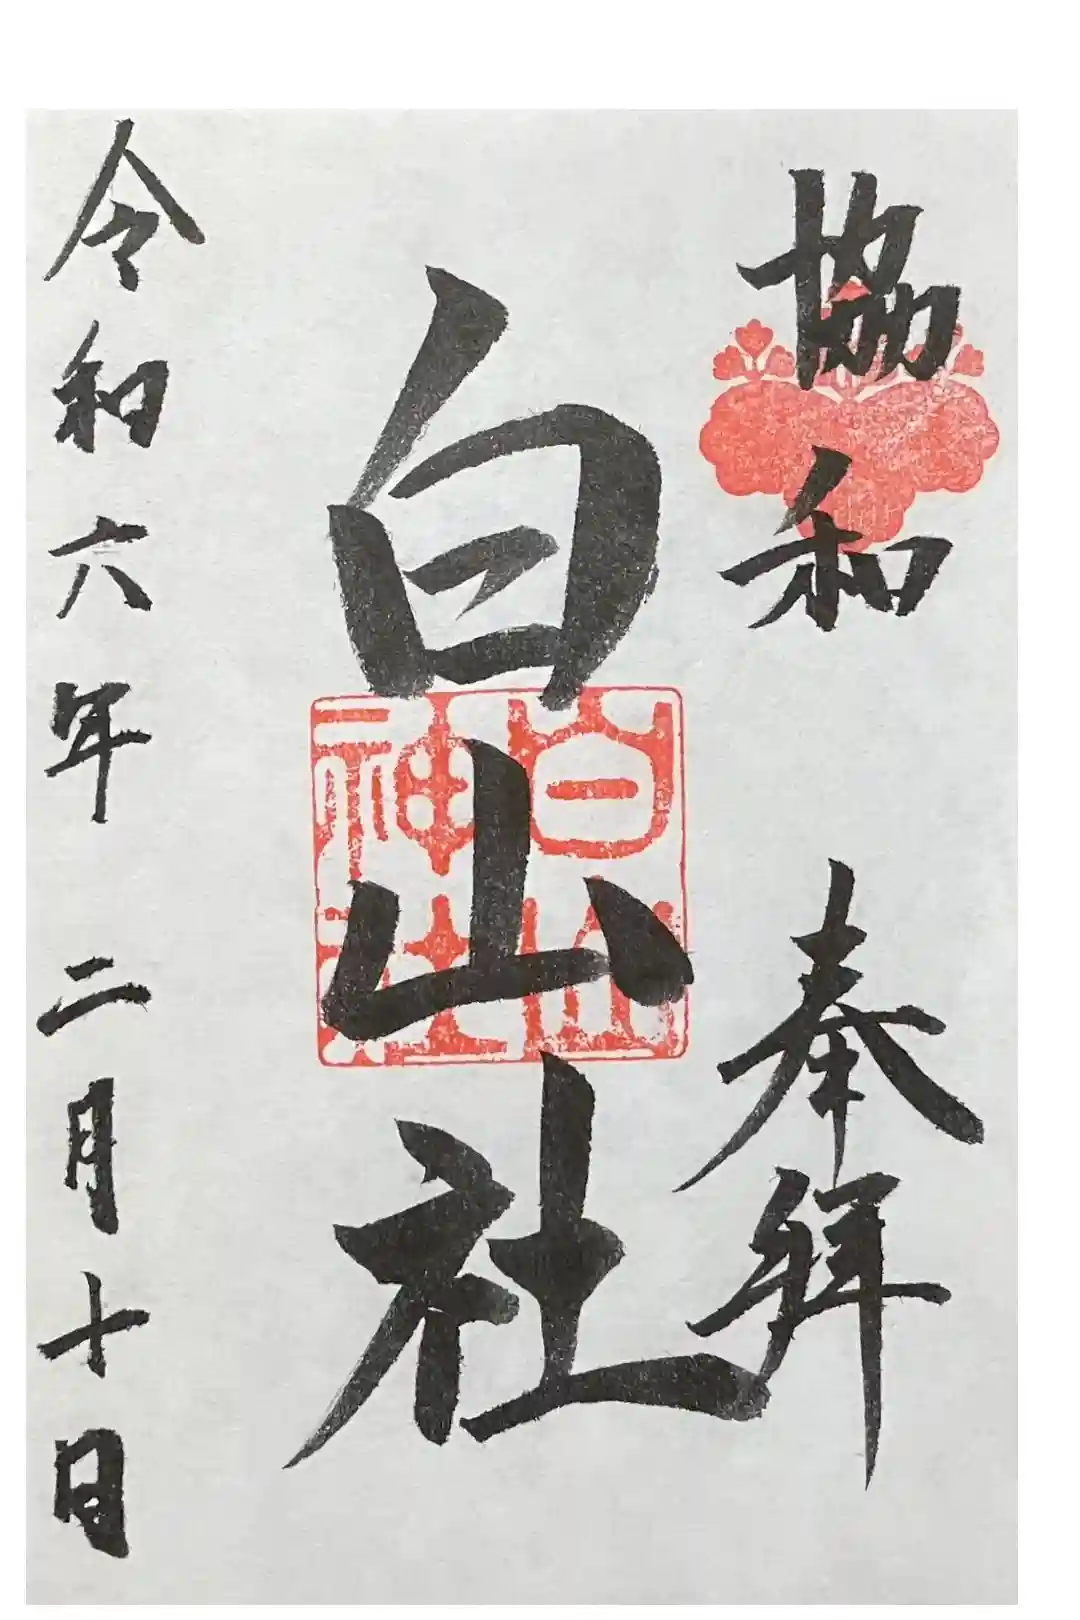 協和 奉拝
白山社
白山神社
令和六年二月十日